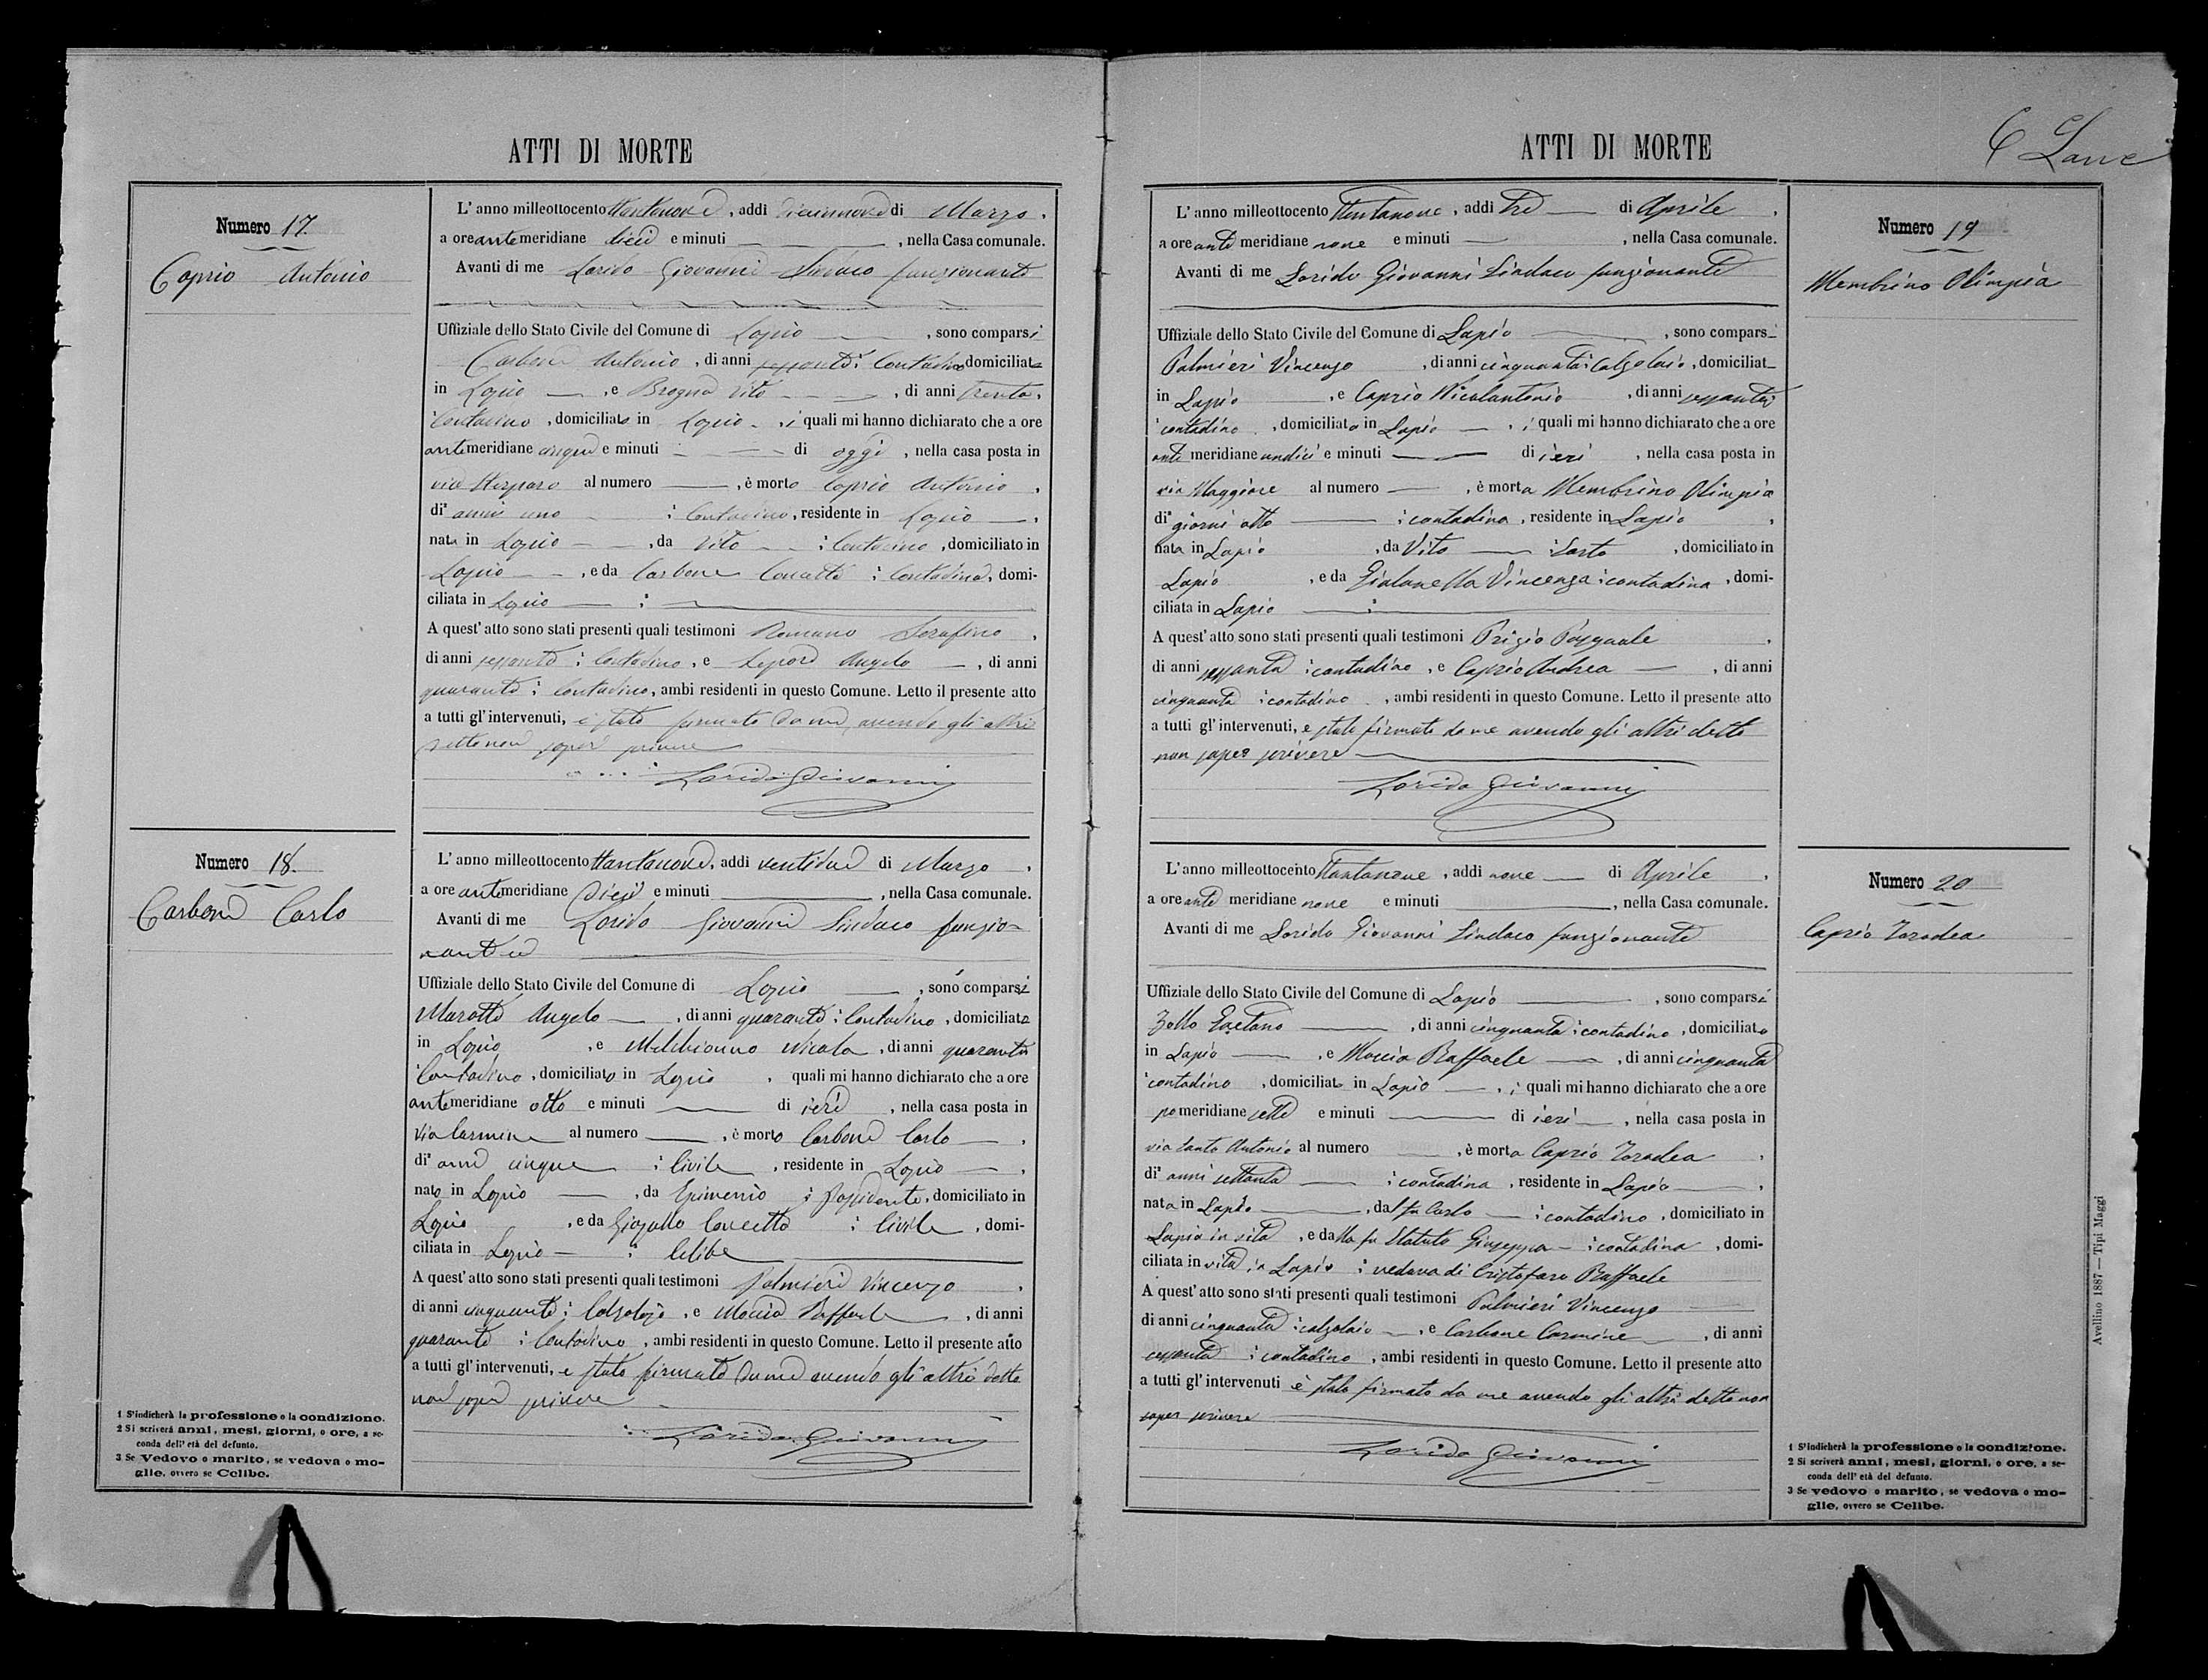 ATTI DI MORTE
Numero 17.
Caprio Antonio
L'anno milleottocento ttantanove, addi diciannove di Marzo,
a ore antemeridiane dieci e minuti , nella Casa comunale.
Avanti di me Lorido Giovanni Sindaco funzionante
Uffiziale dello Stato Civile del Comune di Lapio , sono comparsi
Carbone Antonio, di anni sessanta; Contadino domiciliato
in Lapio , e Brogna Vito , di anni trenta,
Contadino, domiciliato in Lapio , i quali mi hanno dichiarato che a ore
antemeridiane cinque e minuti di oggi, nella casa posta in
via al numero , è morto Caprio Antonio,
di anni uno ; Contadino, residente in Lapio ,
nato in Lapio , da Vito ; Contadino, domiciliato in
Lapio , e da Carbone Concetta; Contadina, domi-
ciliata in Lapio ;
A quest'atto sono stati presenti quali testimoni Romano Serafino,
di anni sessanta; Contadino, e Lepore Angelo , di anni
quaranta; Contadino, ambi residenti in questo Comune. Letto il presente atto
a tutti gl'intervenuti, è stato firmato da me, avendo gli altri
detto non saper scrivere
Lorido Giovanni
Numero 18.
Carbone Carlo
L'anno milleottocento ttantanove, addi ventidue di Marzo,
a ore antemeridiane dieci e minuti , nella Casa comunale.
Avanti di me Lorido Giovanni Sindaco funzio-
nante
Uffiziale dello Stato Civile del Comune di Lapio , sono comparsi
Marotta Angelo , di anni quaranta; Contadino, domiciliato
in Lapio , e Melchionno Nicola, di anni quaranta
Contadino, domiciliato in Lapio , quali mi hanno dichiarato che a ore
antemeridiane otto e minuti di ieri , nella casa posta in
Via Carmine al numero , è morto Carbone Carlo ,
di anni cinque ; Civile , residente in Lapio ,
nato in Lapio , da Epimenio ; Possidente, domiciliato in
Lapio , e da Concetta ; Civile , domi-
ciliata in Lapio ; Celibe
A quest'atto sono stati presenti quali testimoni Palmieri Vincenzo ,
di anni cinquanta; Calzolajo , e Moccia Raffaele , di anni
quaranta ; Contadino, ambi residenti in questo Comune. Letto il presente atto
a tutti gl'intervenuti, è stato firmato da me avendo gli altri detto
non saper scrivere
Lorido Giovanni
1 S'indicherà la professione o la condizione.
2 Si scriverà anni, mesi, giorni, o ore, a se-
conda dell'età del defunto.
3 Se Vedovo o marito, se vedova o mo-
glie, ovvero se Celibe.
ATTI DI MORTE
L'anno milleottocento ttantanove, addi tre di Aprile ,
a ore ante meridiane nove e minuti , nella Casa comunale.
Avanti di me Lorido Giovanni Sindaco funzionante
Uffiziale dello Stato Civile del Comune di Lapio , sono compars
Palmieri Vincenzo , di anni cinquanta; Calzolaio, domiciliat
in Lapio , e Caprio Nicolantonio , di anni sessanta
contadino , domiciliato in Lapio , i quali mi hanno dichiarato che a ore
ante meridiane undici e minuti di ieri , nella casa posta in
via Maggiore al numero , è morta Membrino Olimpia
di giorni otto ; contadina, residente in Lapio ,
nata in Lapio , da Vito ; Sarto , domiciliato in
Lapio , e da Gialanella Vincenza; contadina, domi-
ciliata in Lapio ;
A quest'atto sono stati presenti quali testimoni Prizio Pasquale ,
di anni sessanta; contadino , e Caprio Andrea , di anni
cinquanta ; contadino , ambi residenti in questo Comune. Letto il presente atto
a tutti gl'intervenuti, è stato firmato da me avendo gli altri detto
non saper scrivere
Lorido Giovanni
Numero 19
Membrino Olimpia
L'anno milleottocento ttantanove , addi nove di Aprile ,
a ore ante meridiane nove e minuti , nella Casa comunale.
Avanti di me Lorido Giovanni Sindaco funzionante
Uffiziale dello Stato Civile del Comune di Lapio , sono comparsi
Zollo Gaetano , di anni cinquanta; contadino , domiciliato
in Lapio , e Moccia Raffaele , di anni cinquanta
contadino , domiciliato in Lapio , i quali mi hanno dichiarato che a ore
po meridiane sette e minuti di ieri , nella casa posta in
via Santo Antonio al numero , è morta Caprio Zoradea ,
di anni settanta ; contadina , residente in Lapio ,
nata in Lapio , dal fu Carlo ; contadino , domiciliato in
Lapio in vita , e dalla fu Statuto Giuseppa ; contadina , domi-
ciliata in vita in Lapio ; vedova di Cristofaro Raffaele
A quest'atto sono stati presenti quali testimoni Palmieri Vincenzo
di anni cinquanta; calzolaio , e Carbone Carmine , di anni
sessanta ; contadino , ambi residenti in questo Comune. Letto il presente atto
a tutti gl'intervenuti è stato firmato da me avendo gli altri detto non
saper scrivere
Lorido Giovanni
Numero 20
Caprio Zoradea
1 S'indicherà la professione o la condizione.
2 Si scriverà anni, mesi, giorni, o ore, a se-
conda dell'età del defunto.
3 Se vedovo o marito, se vedova o mo-
glie, ovvero se Celibe.
Avellino 1887 — Tipi Maggi